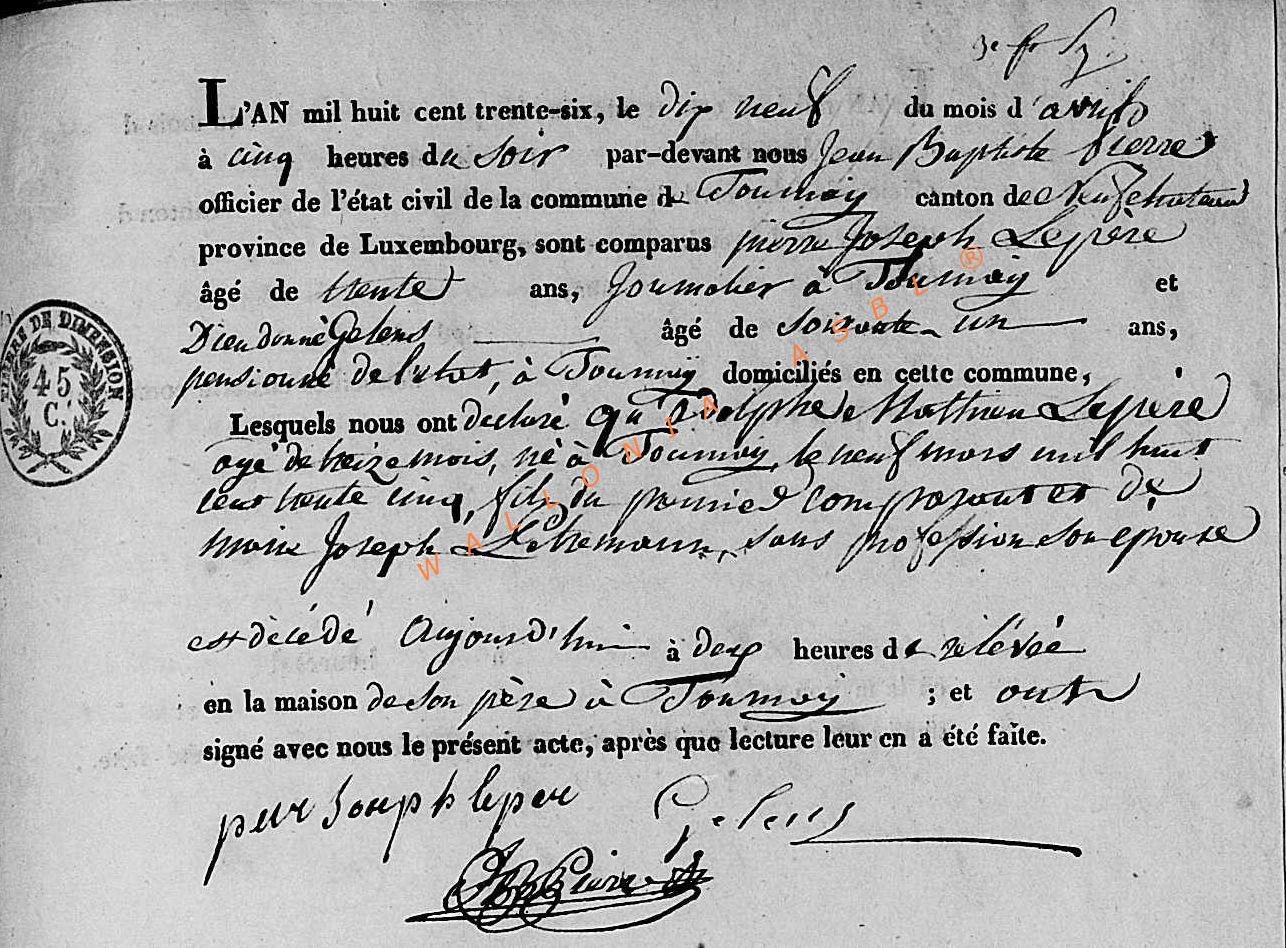 L'AN mil huit cent trente-six, le dix neuf du mois d'avril
à cinq heures du soir par-devant nous Jean Baptiste Pierre
officier de l'état civil de la commune de Tournay canton de Neufchateau
province de Luxembourg, sont comparus pierre Joseph Lepère
âgé de trente ans, Journalier à Tournay et
Dieudonné Gelens âgé de soixante un ans,
pensionné de l'état, à Tournay domiciliés en cette commune,
Lesquels nous ont déclaré qu'Adolphe Mathieu Lepère
agé de treize mois, né à Tournay, le neuf mars mil huit
cent trente cinq, fils du premier comparant et de
marie Joseph, sans profession son épouse
est décédé Aujourd'hui à deux heures de relévée
en la maison de son père à Tournay ; et ont
signé avec nous le présent acte, après que lecture leur en a été faite.
TIMBRE DE DIMENSION
45
C.
pier Joseph leper Gelens
JB Pierre
WALLONIA ASBL ®